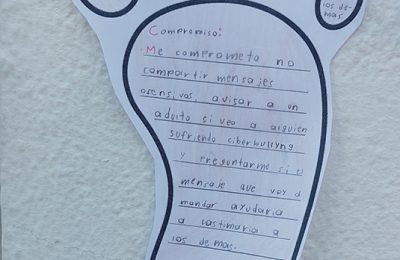 los de-
mas
Compromiso:
Me comprometo no
compartir mensajes
osensivos, avisar a un
adulto si veo a alguien
sufriendo ciberbullyng
y preguntarme si el
mensaje que voy a
mandar ayudaria
a lastimaria a
los demas.